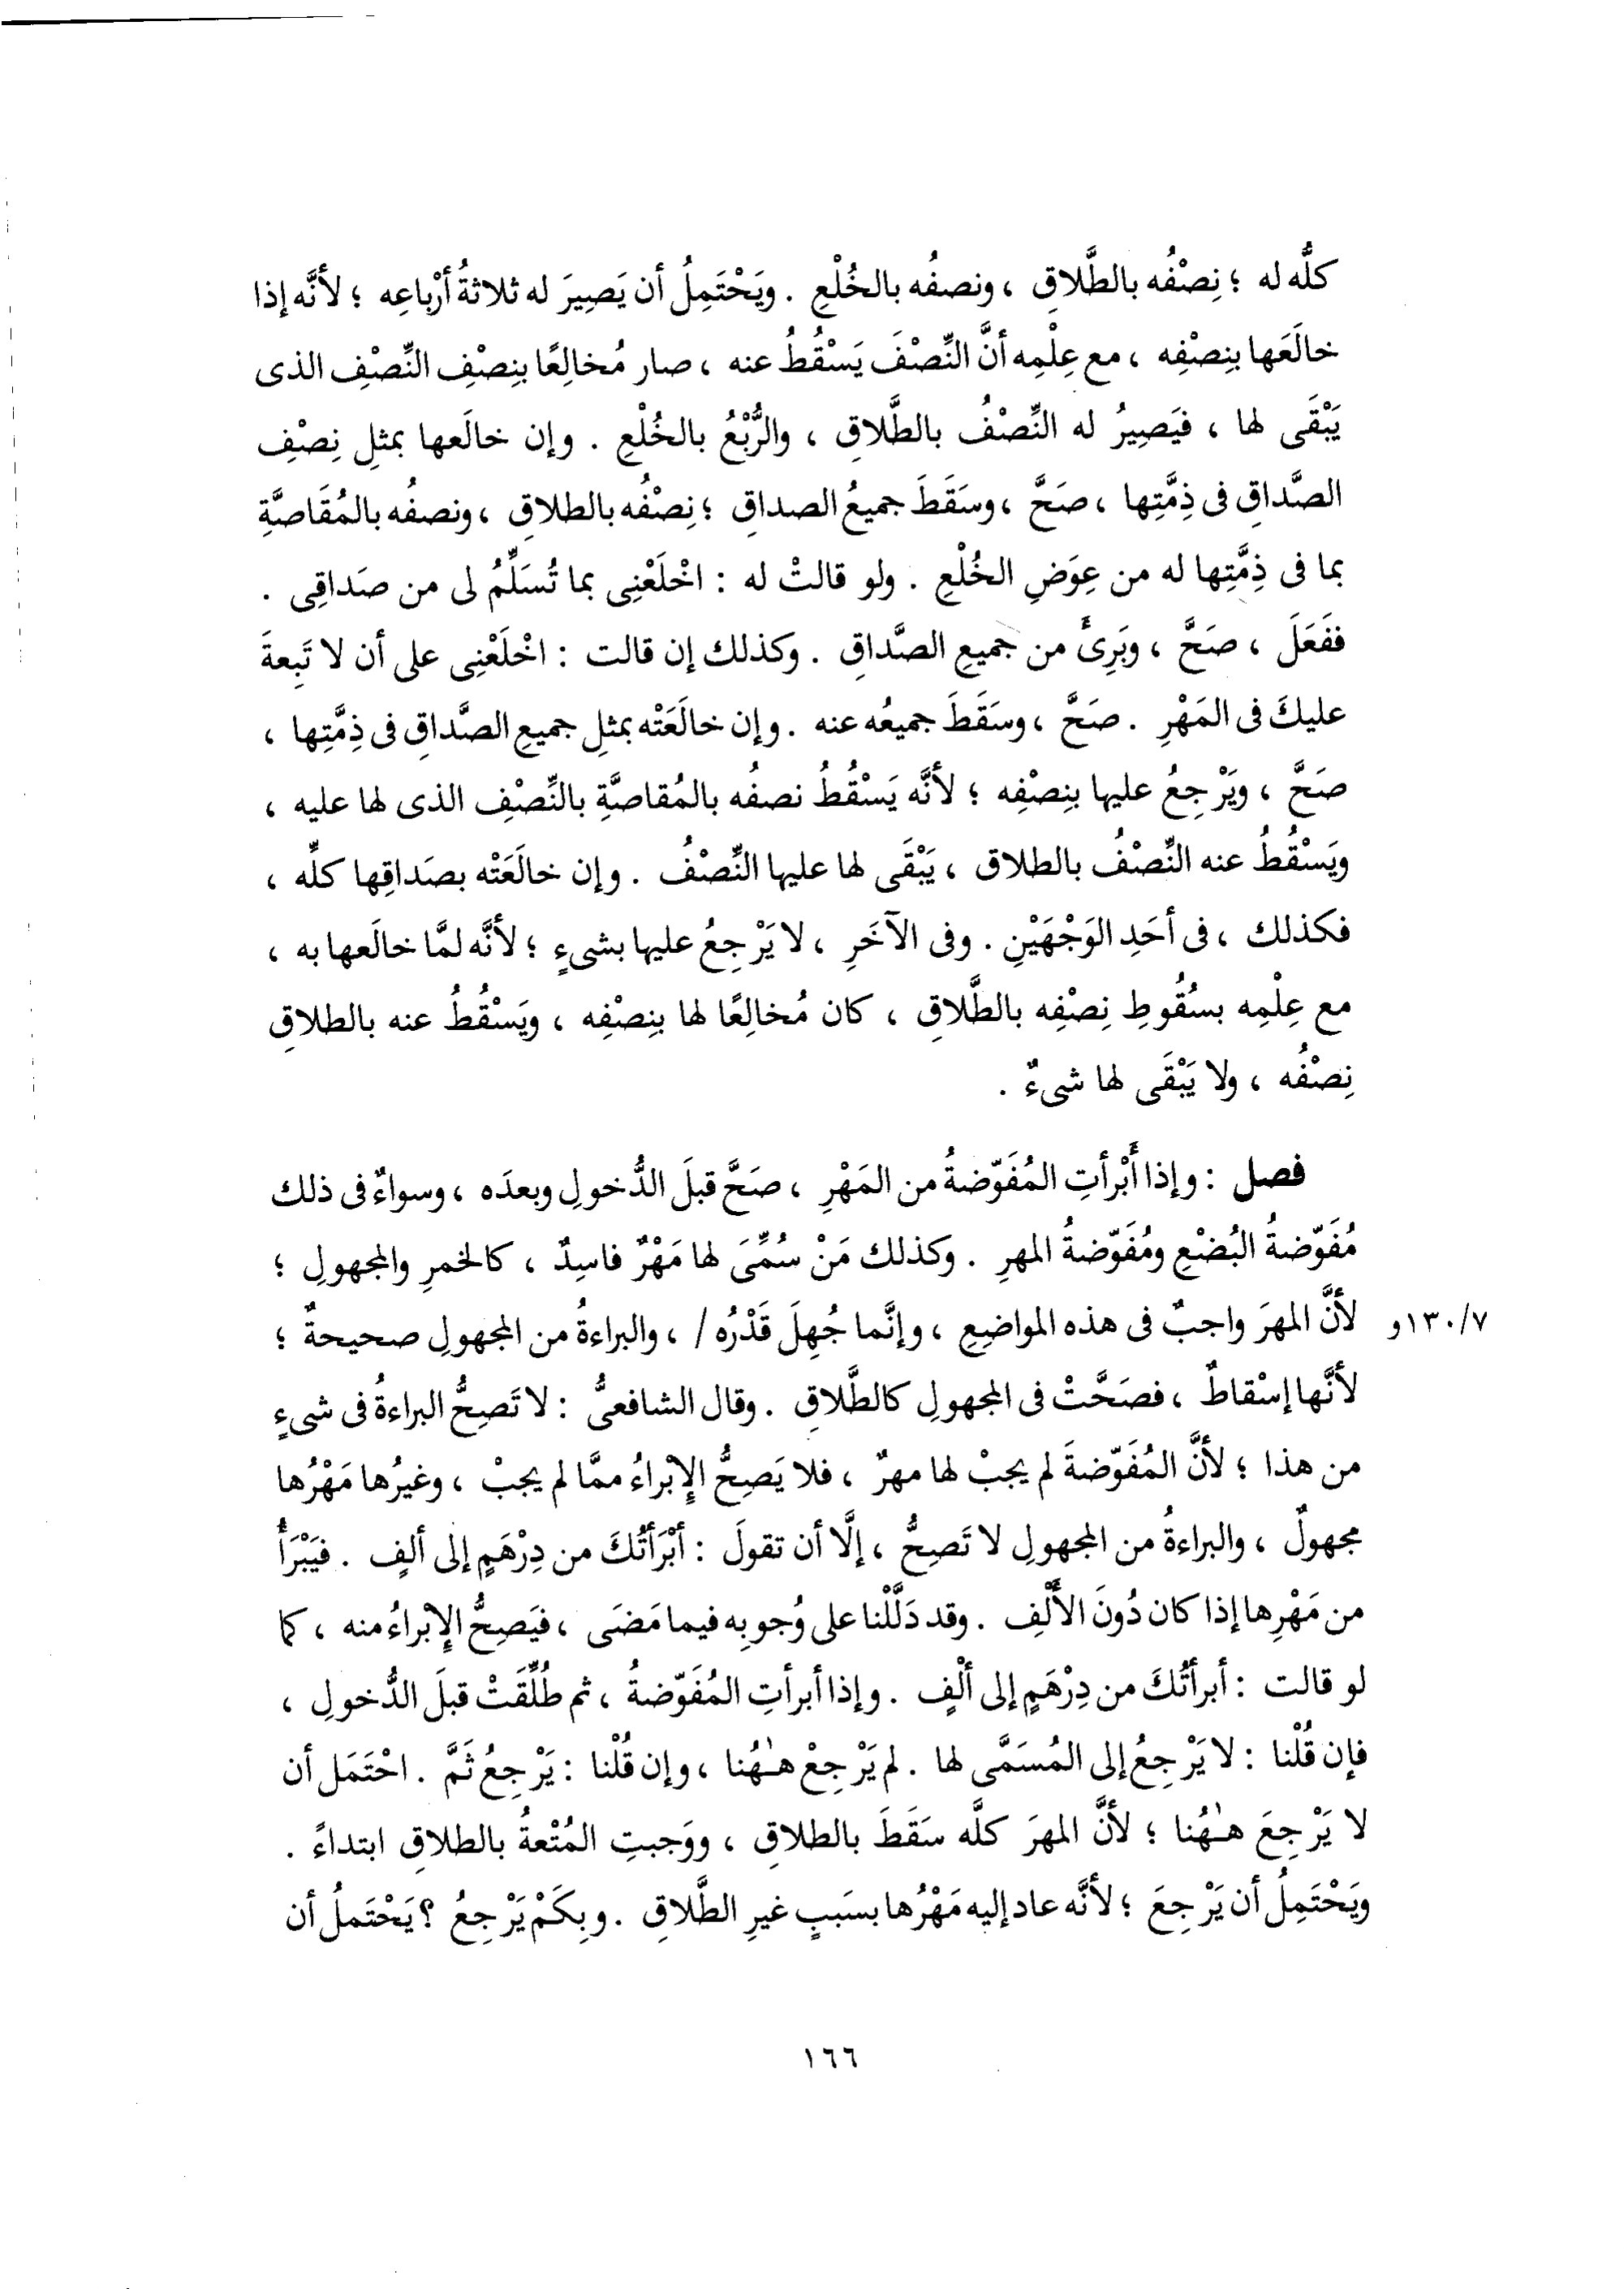 كلُّه له ؛ نِصْفُه بالطَّلاقِ ، ونصفُه بالخُلْعِ . ويَحْتَمِلُ أن يَصِيرَ له ثلاثةُ أرْباعِه ؛ لأنَّه إذا
خالَعَها بنِصْفِه ، مع عِلْمِه أنَّ النِّصْفَ يَسْقُطُ عنه ، صار مُخالِعًا بنِصْفِ النِّصْفِ الذى
يَبْقَى لها ، فيَصِيرُ له النِّصْفُ بالطَّلاقِ ، والرُّبْعُ بالخُلْعِ . وإن خالَعها بمثلِ نِصْفِ
الصَّداقِ فى ذِمَّتِها ، صَحَّ ، وسَقَطَ جميعُ الصداقِ ؛ نِصْفُه بالطلاقِ ، ونصفُه بالمُقَاصَّةِ
بما فى ذِمَّتِها له من عِوَضِ الخُلْعِ . ولو قالتْ له : اخْلَعْنِى بما تُسَلِّمُ لى من صَداقِى .
ففَعَلَ ، صَحَّ ، وبَرِئَ من جميعِ الصَّداقِ . وكذلك إن قالت : اخْلَعْنِى على أن لا تَبِعةَ
عليكَ فى المَهْرِ . صَحَّ ، وسَقَطَ جميعُه عنه . وإن خالَعَتْه بمثلِ جميعِ الصَّداقِ فى ذِمَّتِها ،
صَحَّ ، ويَرْجِعُ عليها بنِصْفِه ؛ لأنَّه يَسْقُطُ نصفُه بالمُقاصَّةِ بالنِّصْفِ الذى لها عليه ،
ويَسْقُطُ عنه النِّصْفُ بالطلاق ، يَبْقَى لها عليها النِّصْفُ . وإن خالَعَتْه بصَداقِها كلِّه ،
فكذلك ، فى أحَدِ الوَجْهَيْنِ . وفى الآخَرِ ، لا يَرْجِعُ عليها بشىءٍ ؛ لأنَّه لمَّا خالَعها به ،
مع عِلْمِه بسُقُوطِ نِصْفِه بالطَّلاقِ ، كان مُخالِعًا لها بنِصْفِه ، ويَسْقُطُ عنه بالطلاقِ
نِصْفُه ، ولا يَبْقَى لها شىءٌ .
فصل : وإذا أَبْرأتِ المُفَوّضةُ من المَهْرِ ، صَحَّ قبلَ الدُّخولِ وبعدَه ، وسواءٌ فى ذلك
مُفَوّضةُ البُضْعِ ومُفَوّضةُ المهرِ . وكذلك مَنْ سُمِّىَ لها مَهْرٌ فاسِدٌ ، كالخمرِ والمجهولِ ؛
١٣٠/٧و لأنَّ المهرَ واجبٌ فى هذه المواضِعِ ، وإنَّما جُهِلَ قَدْرُه / ، والبراءةُ من المجهولِ صحيحةٌ ؛
لأنَّها إسْقاطٌ ، فصَحَّتْ فى المجهولِ كالطَّلاقِ . وقال الشافعىُّ : لا تَصِحُّ البراءةُ فى شىءٍ
من هذا ؛ لأنَّ المُفَوّضةَ لم يجبْ لها مهرٌ ، فلا يَصِحُّ الإِبْراءُ ممَّا لم يجبْ ، وغيرُها مَهْرُها
مجهولٌ ، والبراءةُ من المجهولِ لا تَصِحُّ ، إلَّا أن تقولَ : أبْرَأتُكَ من دِرْهَمٍ إلى ألفٍ . فيَبْرَأُ
من مَهْرِها إذا كان دُونَ الأَلْفِ . وقد دَلَّلْنا على وُجوبِه فيما مَضَى ، فيَصِحُّ الإِبْراءُ منه ، كما
لو قالت : أبرأتُكَ من دِرْهَمٍ إلى ألْفٍ . وإذا أبرأتِ المُفَوّضةُ ، ثم طُلِّقَتْ قبلَ الدُّخولِ ،
فإن قُلْنا : لا يَرْجِعُ إلى المُسَمَّى لها . لم يَرْجِعْ هـٰهُنا ، وإن قُلْنا : يَرْجِعُ ثَمَّ . احْتَمَل أن
لا يَرْجِعَ هـٰهُنا ؛ لأنَّ المهرَ كلَّه سَقَطَ بالطلاقِ ، ووَجبتِ المُتْعةُ بالطلاقِ ابتداءً .
ويَحْتَمِلُ أن يَرْجِعَ ؛ لأنَّه عاد إليه مَهْرُها بسَببٍ غيرِ الطَّلاقِ . وبِكَمْ يَرْجِعُ ؟ يَحْتَملُ أن
١٦٦